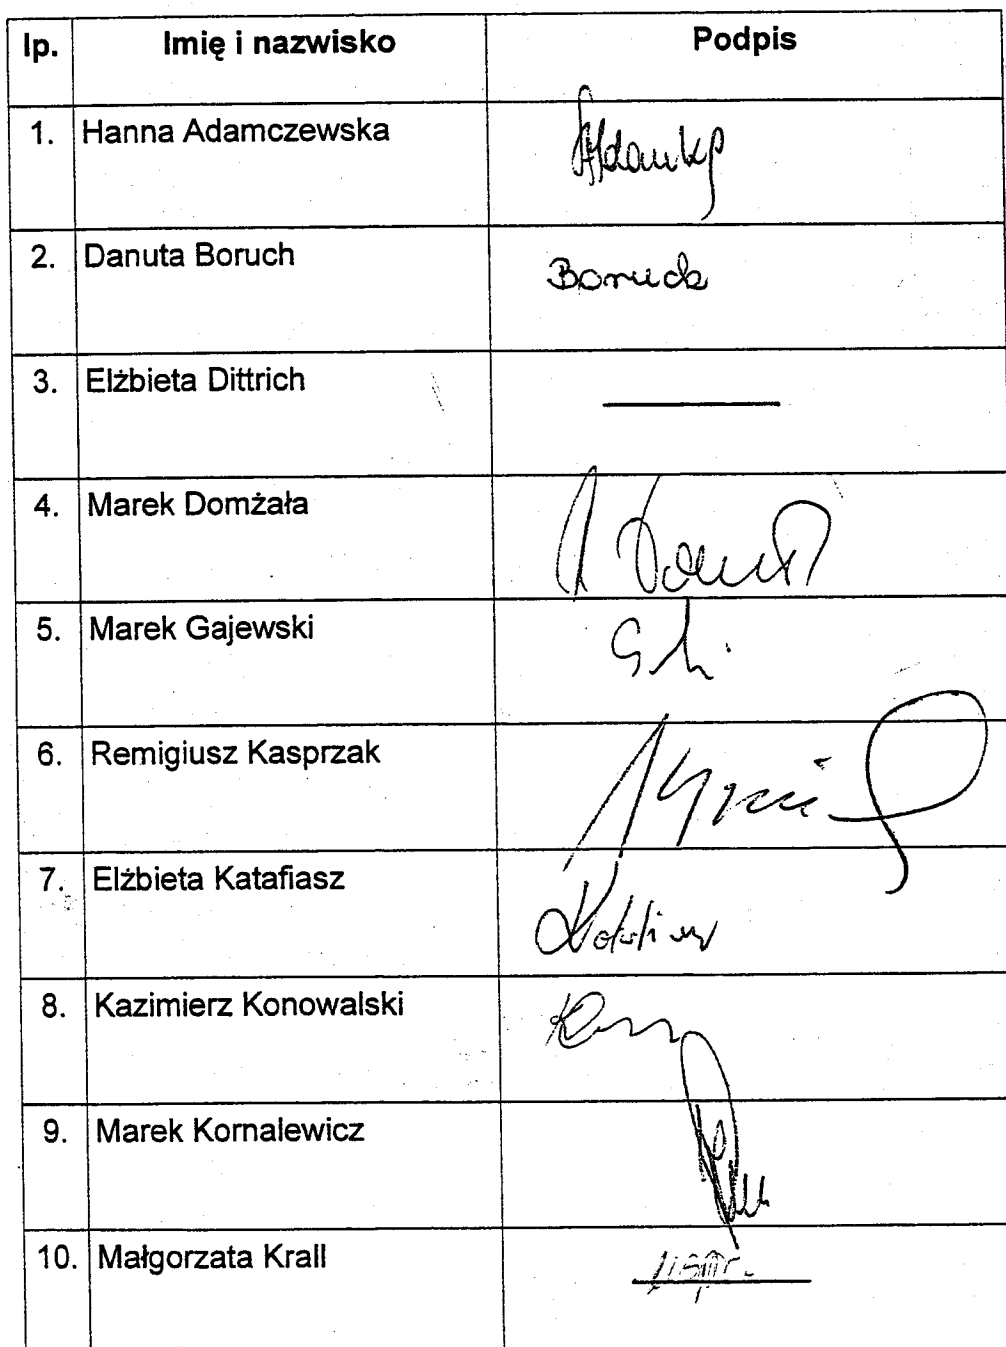 lp. Imię i nazwisko Podpis
1. Hanna Adamczewska
2. Danuta Boruch Boruch
3. Elżbieta Dittrich
4. Marek Domżała
5. Marek Gajewski
6. Remigiusz Kasprzak
7. Elżbieta Katafiasz
8. Kazimierz Konowalski
9. Marek Kornalewicz
10. Małgorzata Krall